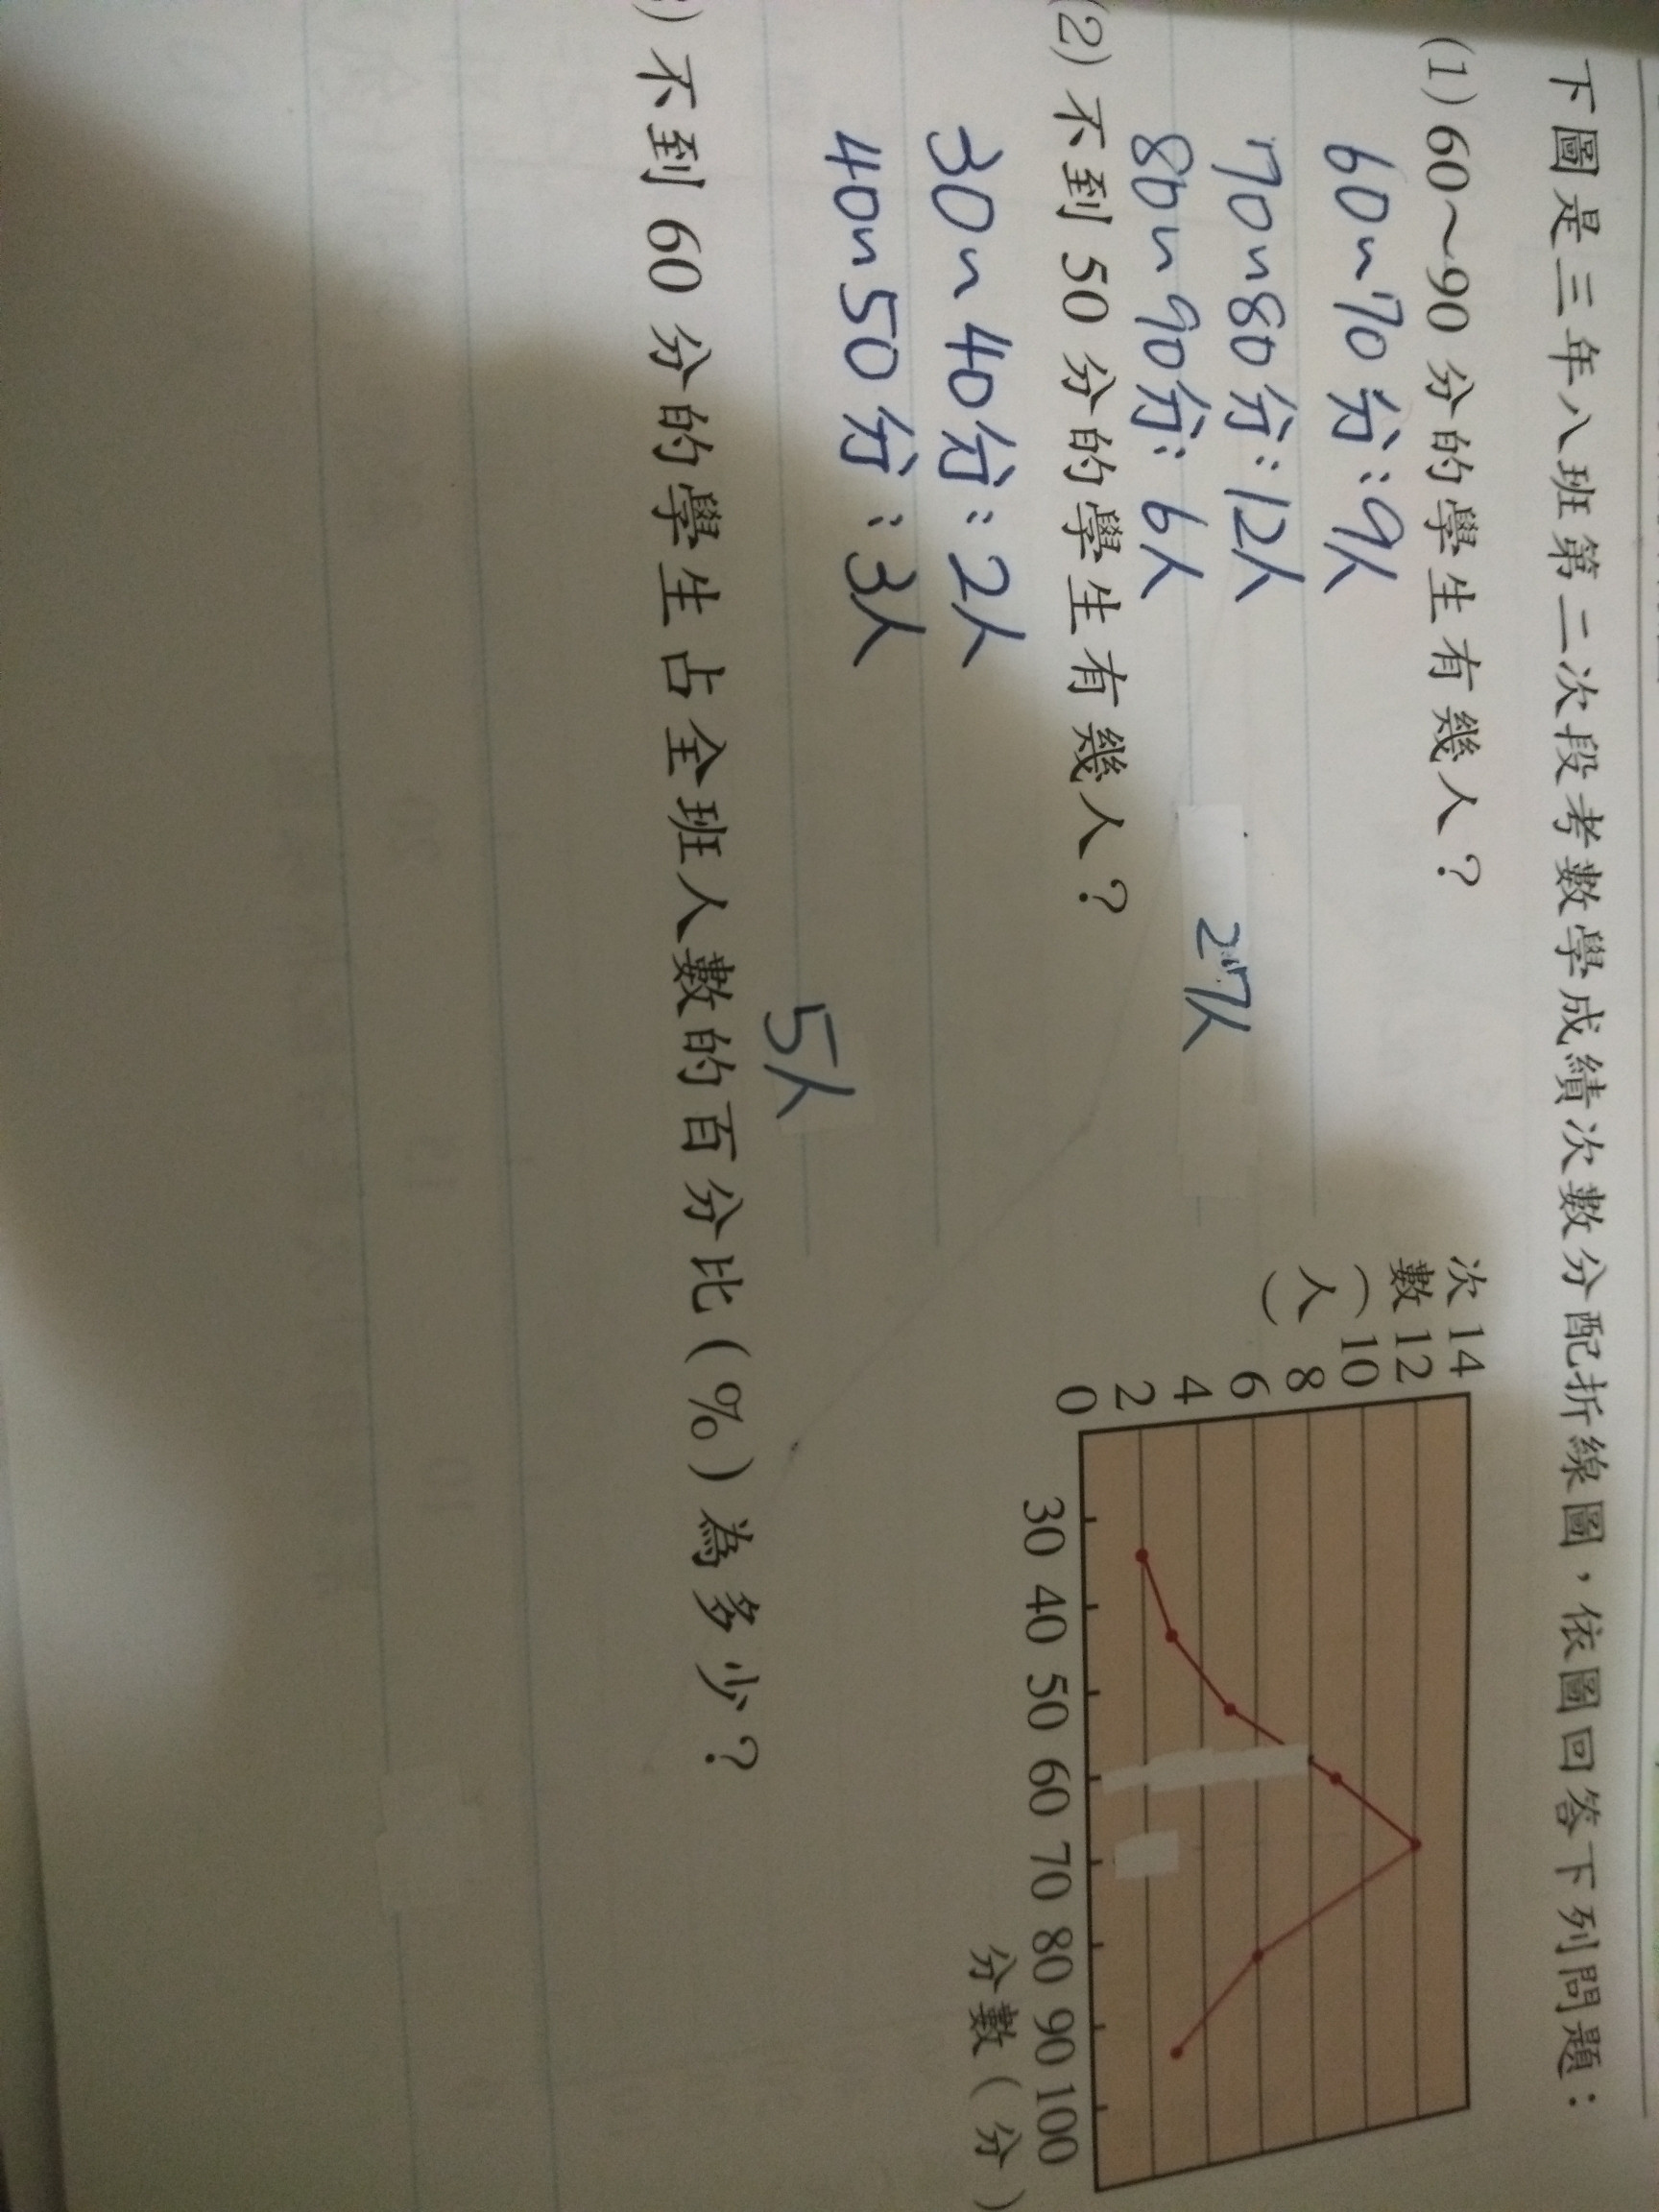 下圖是三年八班第二次段考數學成績次數分配折線圖，依圖回答下列問題：
(1) 60～90 分的學生有幾人？
60~70分：9人
70~80分：12人
80~90分：6人
27人
(2) 不到 50 分的學生有幾人？
30~40分：2人
40~50分：3人
5人
) 不到 60 分的學生占全班人數的百分比(%)為多少？
次數(人)
14
12
10
8
6
4
2
0
30 40 50 60 70 80 90 100
分數(分)